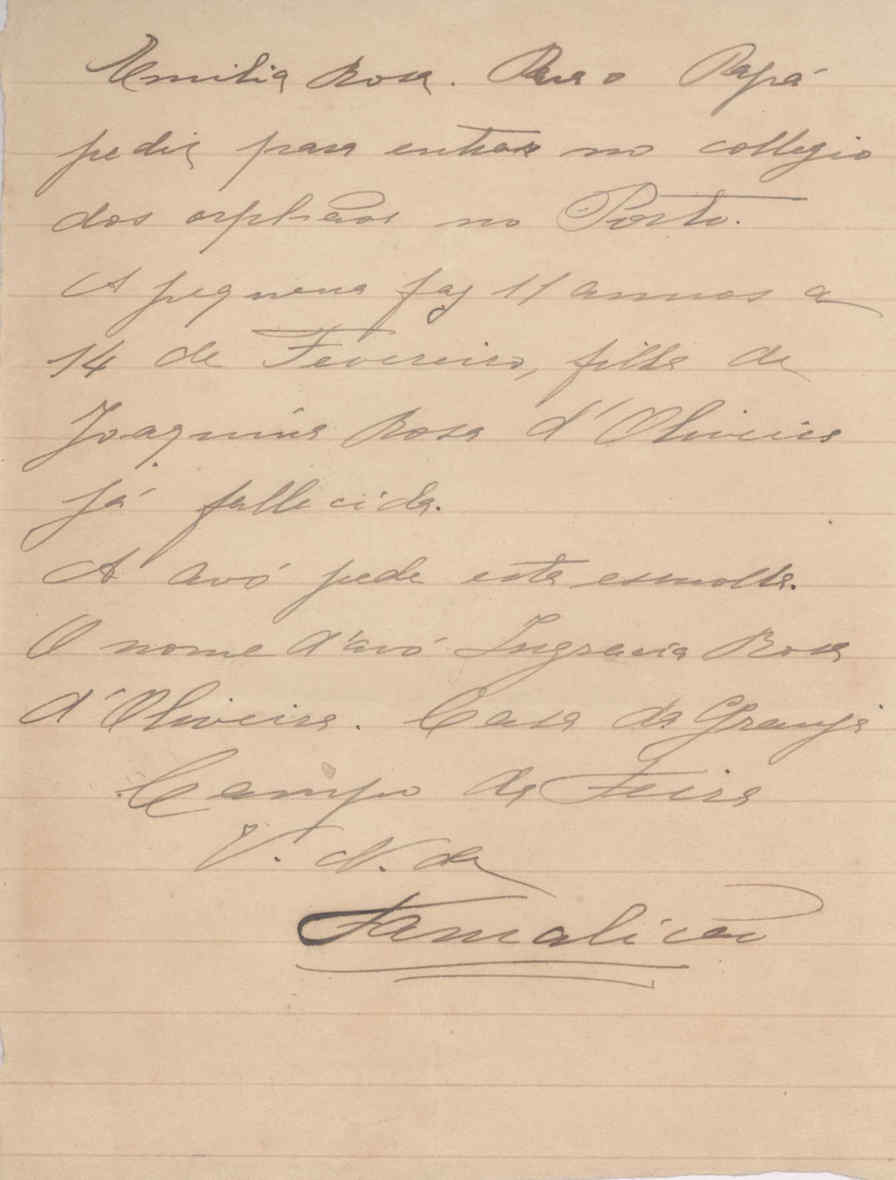 Emilia Rosa. Para o Papá
pedir para entrar no collegio
dos orphãos no Porto.
A pequena faz 11 annos a
14 de Fevereiro, filha de
Joaquina Rosa d'Oliveira
já fallecida.
A avó pede esta esmolla.
O nome d'avó Ingracia Rosa
d'Oliveira. Casa da Granja
Campo da Feira
V. N. de
Famalicão